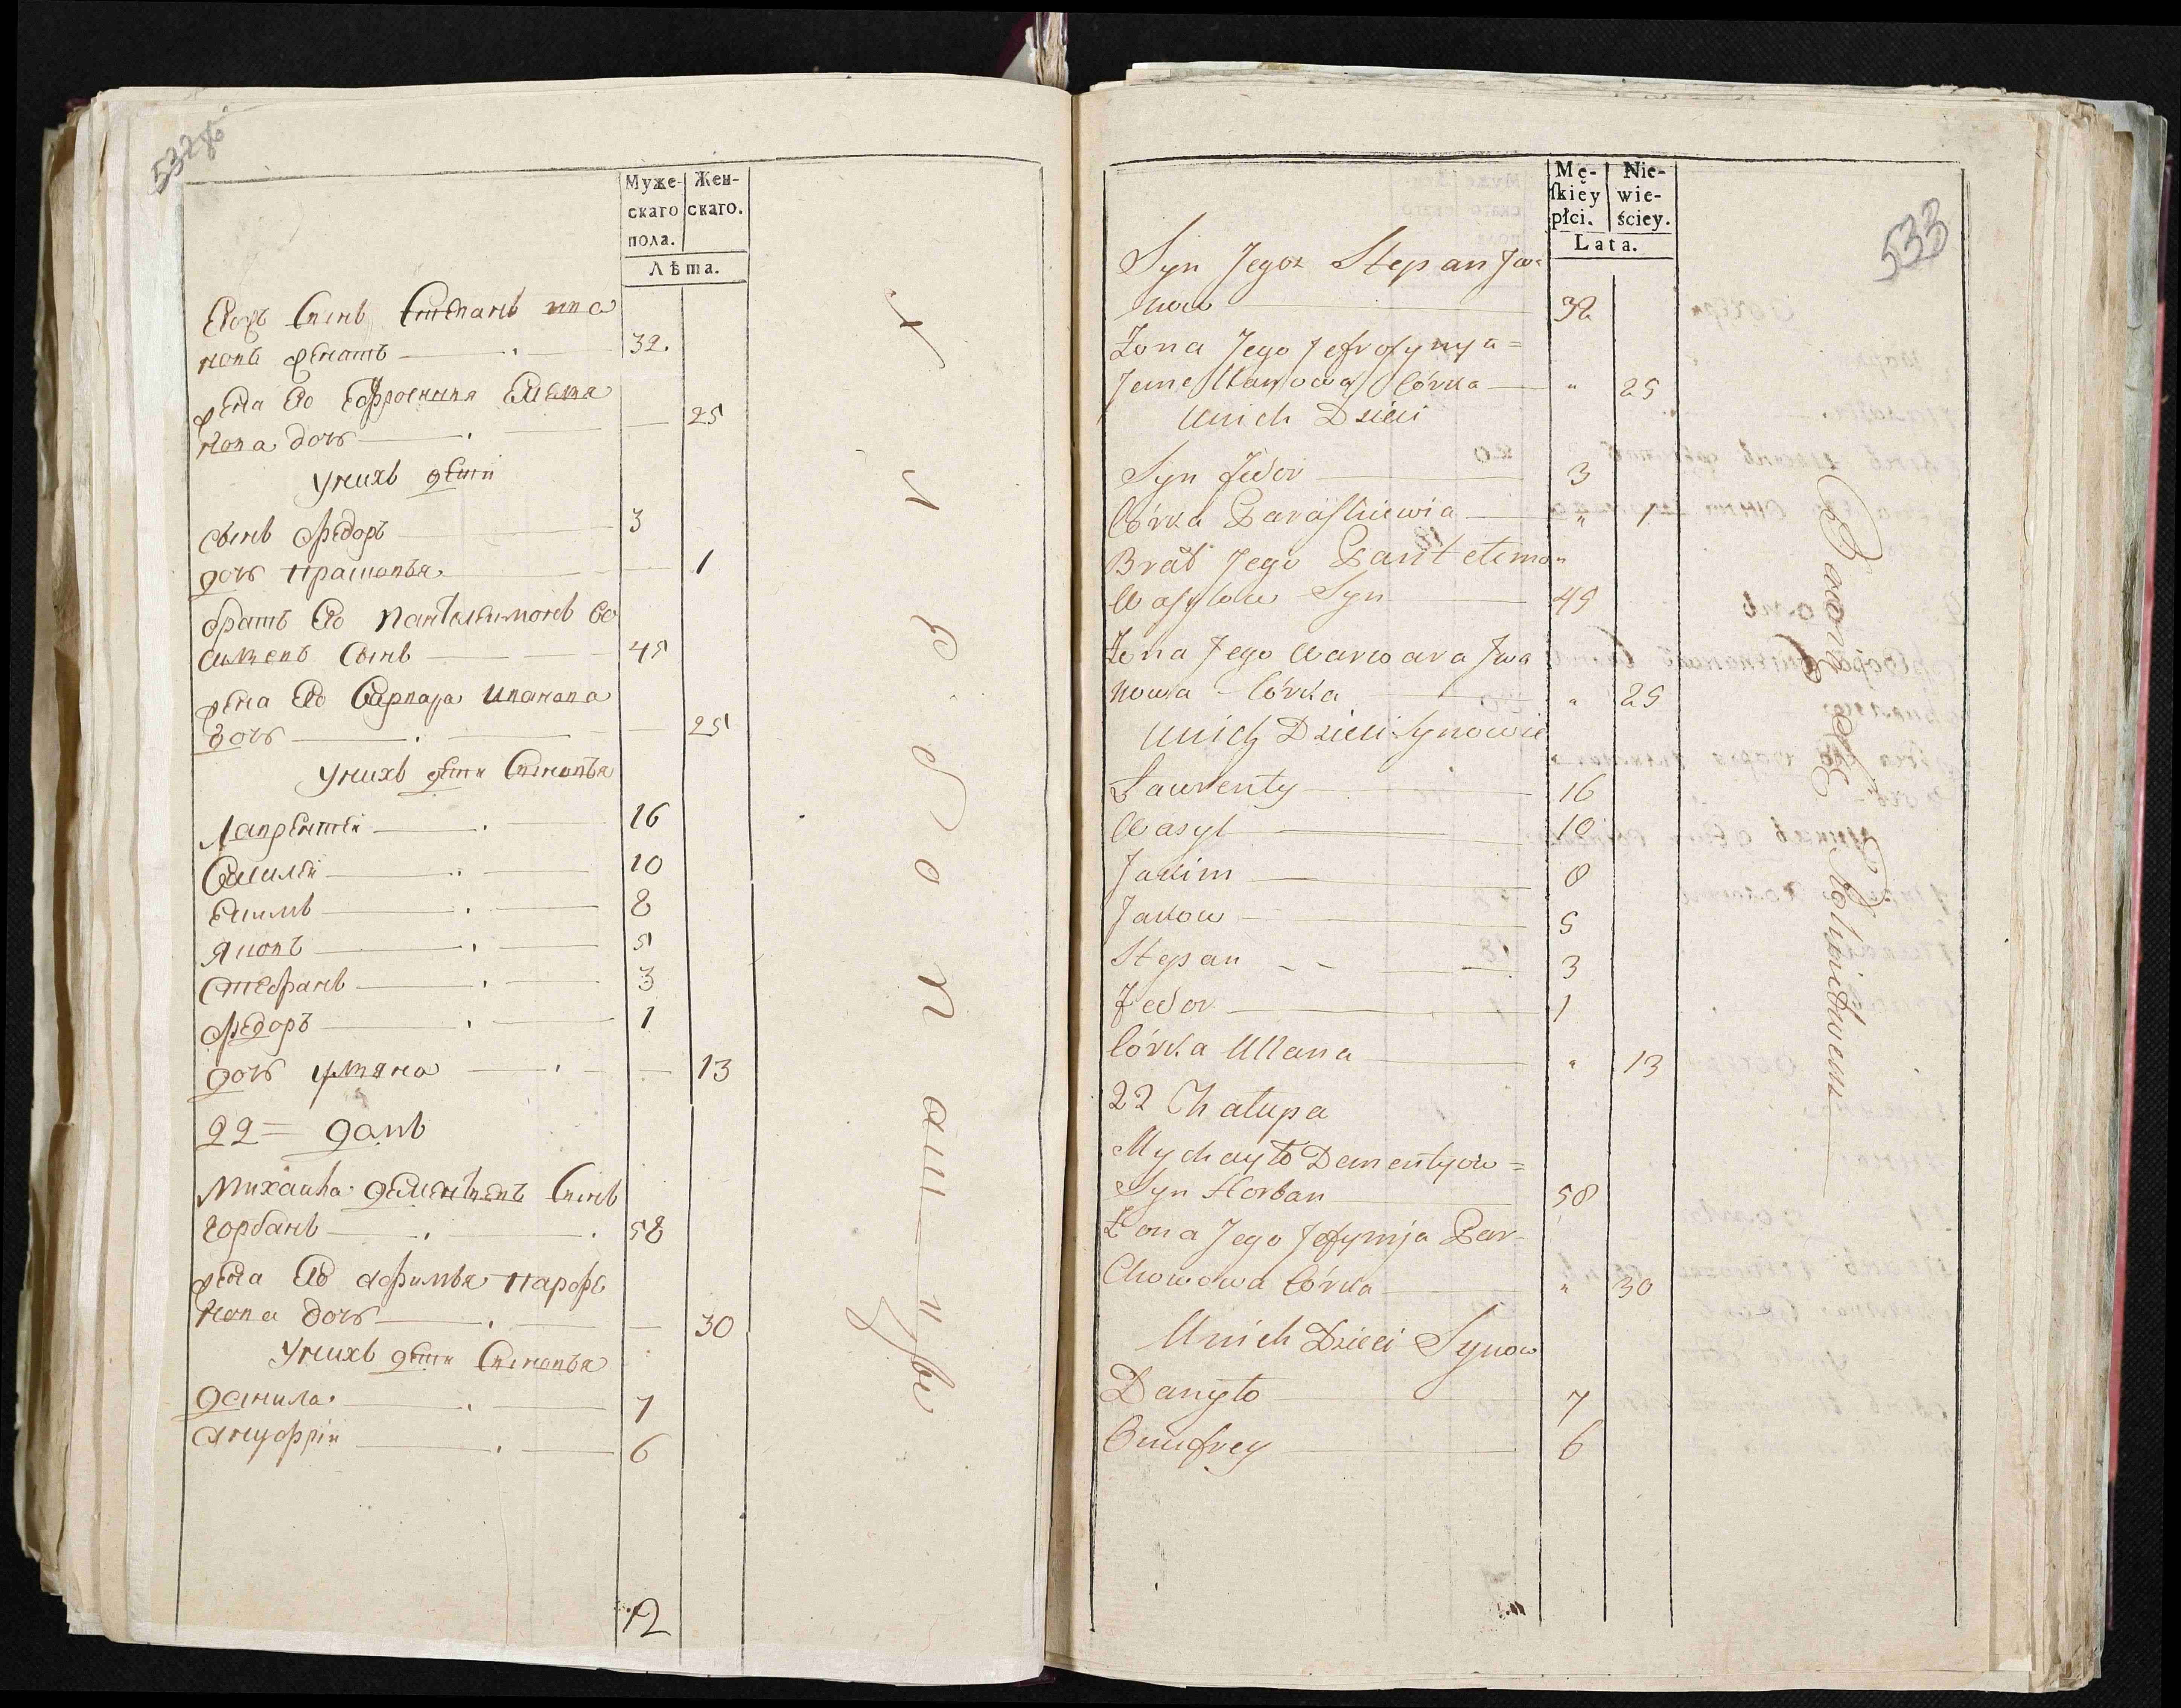 532об
Муже-
скаго
пола.
Жен-
скаго.
Лѣта.
Егоръ Сынъ Степанъ ива
новъ женатъ 32.
жена Его Ефросиния Емелія
нова дочь 25
Унихъ дети
сынъ Федоръ 3
дочь Прасковья 1
братъ Его Пантелеимонъ Ва
силиевъ Сынъ 45
жена Его Варвара Иванова
дочь 25
Унихъ дети Сыновья
Лаврентей 16
Василей 10
Екимъ 8
Яковъ 5
Стефанъ 3
Федоръ 1
дочь ульяна 13
22= домъ
Михаила дементьевъ Сынъ
Горбань 58
жена Его Афимья Парфе
нова дочь 30
Унихъ дети Сыновья
Данила 7
Ануфрій 6
12
533
Mę-
ſkiéy
płci.
Nie-
wie-
ściey.
Lata.
Syn Jegoz Stepan Jwa
now 32
Zona Jego Jefrosynya=
Córka " 25
Unich Dzieci
Syn Fedor 3
Córka Paraskiewia " 1
Brat Jego Pantelemon
Wasylow Syn 45
Zona Jego Warwara Jwa
nowa Córka " 25
Unich Dzieci Synowie
Lawrenty 16
Wasyl 10
Jakim 8
Jakow 5
Stepan 3
Fedor 1
Córka Ullana " 13
22 Chałupa
Mychayło Dementyow=
Syn Horban 58
Zona Jego Jefymja Par-
Chomowa Córka " 30
Unich Dzieci Synow
Danyło 7
Onufrey 6